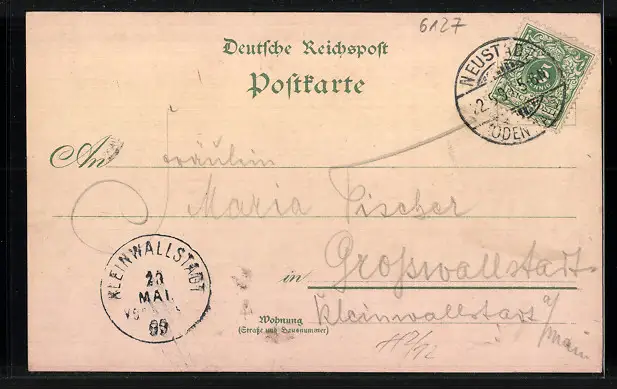 6127
Deutsche Reichspost
Postkarte
NEUSTADT
ODEN
An Fräulein
Maria Fischer
in Großwallstadt
Kleinwallstadt a/
Main
Wohnung
(Straße und Hausnummer)
KLEINWALLSTADT
20
MAI.
99